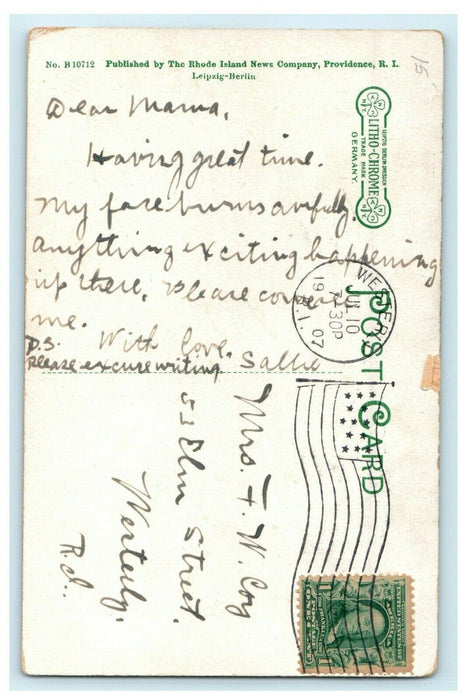 No. B 10712 Published by The Rhode Island News Company, Providence, R. I.
Leipzig-Berlin
15
Dear Mama,
Having great time.
My face burns awfully.
anything exciting happening
up there. Please correct
me.
With love,
Sallie
P.S.
Please excuse writing.
LITHO-CHROME
LEIPZIG BERLIN DRESDEN
TRADE MARK
GERMANY.
POST CARD
WESTERLY
JUL 10
7 30P
1907
R.I.
Mrs. F. W. Coy
53 Elm Street.
Westerly,
R.I.